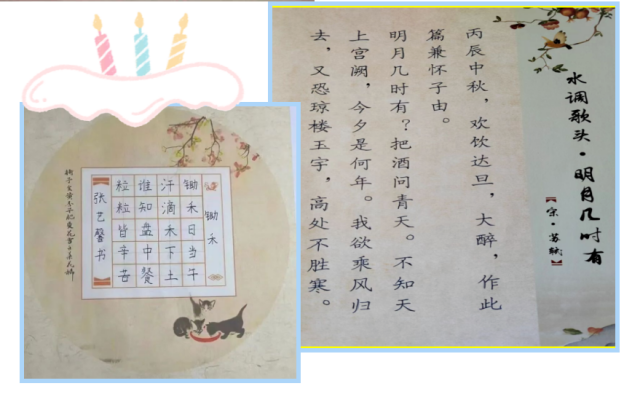 水调歌头·明月几时有
【宋·苏轼】
丙辰中秋，欢饮达旦，大醉，作此
篇兼怀子由。
明月几时有？把酒问青天。不知天
上宫阙，今夕是何年。我欲乘风归
去，又恐琼楼玉宇，高处不胜寒。
锄禾
锄禾日当午
汗滴禾下土
谁知盘中餐
粒粒皆辛苦
张艺书